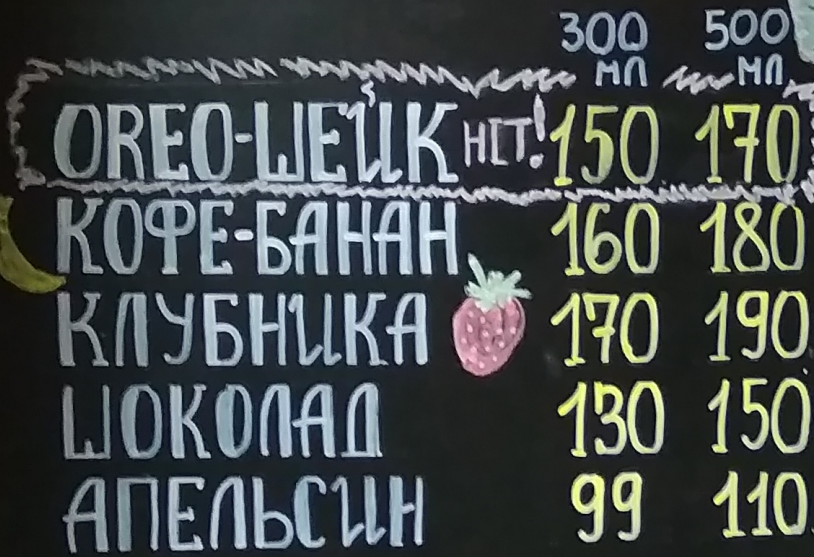 300 500
МЛ МЛ
OREO-ШЕЙК HIT! 150 170
КОФЕ-БАНАН 160 180
КЛУБНИКА 170 190
ШОКОЛАД 130 150
АПЕЛЬСИН 99 110